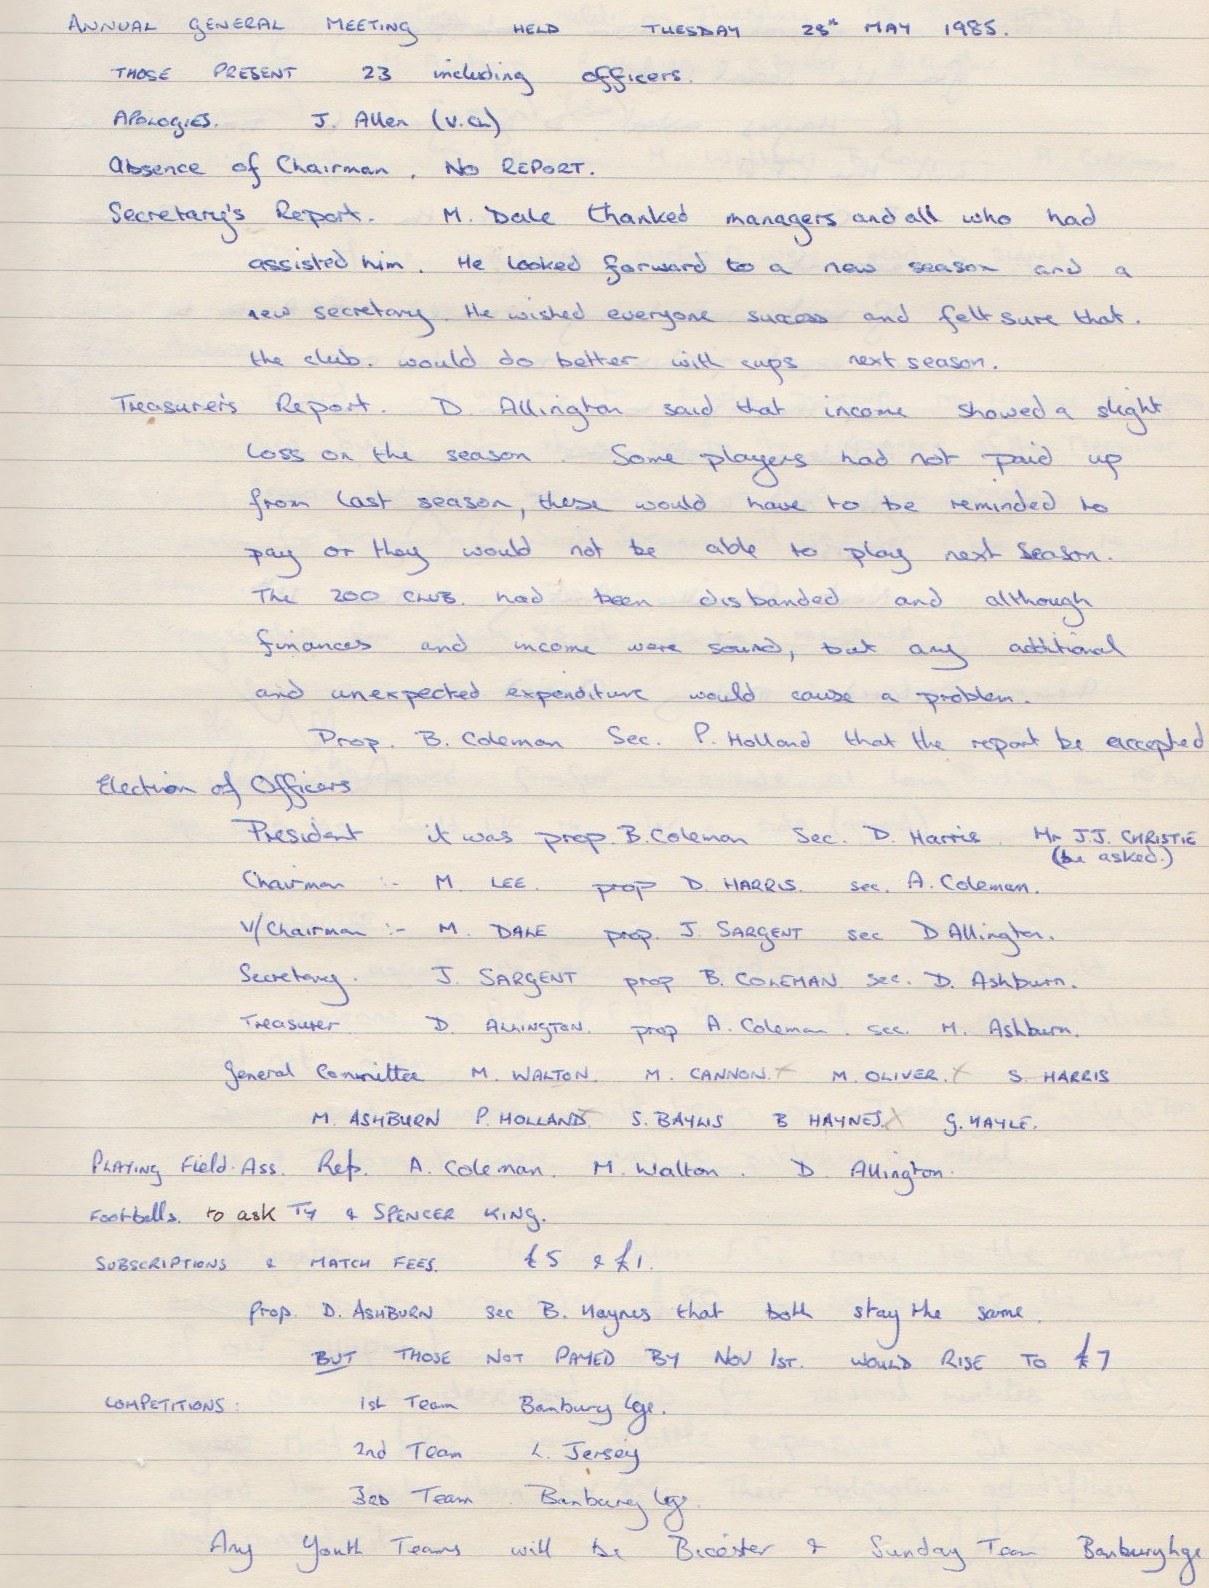 ANNUAL GENERAL MEETING HELD TUESDAY 28th MAY 1985.
THOSE PRESENT 23 including officers.
APOLOGIES. J. Allen (V.Ch)
Absence of Chairman, NO REPORT.
Secretary's Report. M. Dale thanked managers and all who had
assisted him. He looked forward to a new season and a
new secretary. He wished everyone success and felt sure that.
the club. would do better with cups next season.
Treasurer's Report. D. Allington said that income showed a slight
loss on the season. Some players had not paid up
from last season, these would have to be reminded to
pay or they would not be able to play next season.
The 200 CLUB. had been disbanded and although
finances and income were sound, but any additional
and unexpected expenditure would cause a problem.
Prop. B. Coleman Sec. P. Holland that the report be accepted
Election of Officers
President it was prop. B. Coleman Sec. D. Harris. Mr J.J. CHRISTIE
(be asked.)
Chairman :- M. LEE. prop D. HARRIS. sec. A. Coleman.
V/Chairman :- M. DALE prop. J. SARGENT sec D Allington.
Secretary. J. SARGENT prop B. COLEMAN sec. D. Ashburn.
Treasurer D. ALLINGTON. prop A. Coleman. sec. M. Ashburn.
General Committee M. WALTON. M. CANNON. X M. OLIVER. X S. HARRIS
M. ASHBURN P. HOLLAND X S. BAYLIS B HAYNES. X G. HAYLE.
PLAYING Field. Ass. Rep. A. Coleman. M. Walton. D. Allington.
Footballs. to ask TY & SPENCER KING.
SUBSCRIPTIONS & MATCH FEES. £5 & £1.
Prop. D. ASHBURN sec B. Haynes that both stay the same.
BUT THOSE NOT PAYED BY NOV 1ST. WOULD RISE TO £7
COMPETITIONS: 1st Team Banbury Lge.
2nd Team L. Jersey
3RD Team Banbury Lge.
Any Youth Teams will be Bicester & Sunday Team Banbury Lge